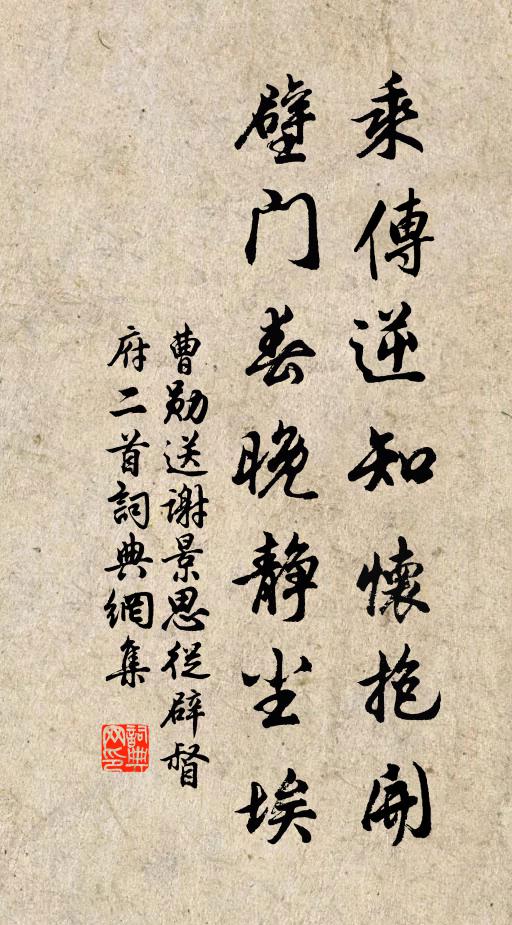 乘傳逆知懷抱開
壁門春晚靜尘埃
曹勛送谢景思從辟督
府二首詞典網集
詞典
网印